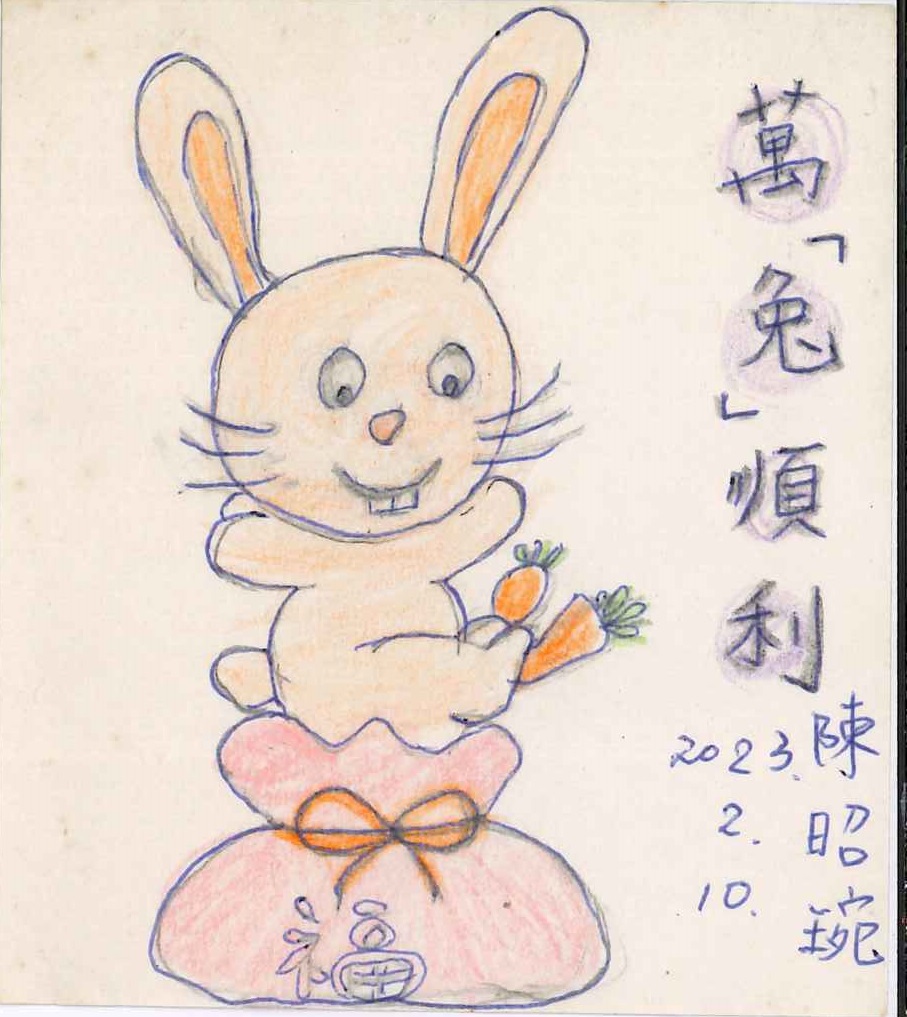 萬「兔」順利
陳昭琬
2023.
2.
10.
福